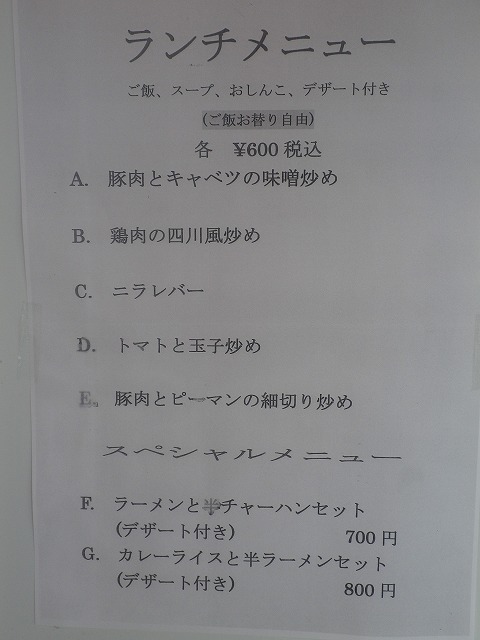 ランチメニュー
ご飯、スープ、おしんこ、デザート付き
(ご飯お替り自由)
各 ¥600 税込
A. 豚肉とキャベツの味噌炒め
B. 鶏肉の四川風炒め
C. ニラレバー
D. トマトと玉子炒め
E. 豚肉とピーマンの細切り炒め
スペシャルメニュー
F. ラーメンと半チャーハンセット
(デザート付き) 700 円
G. カレーライスと半ラーメンセット
(デザート付き) 800 円